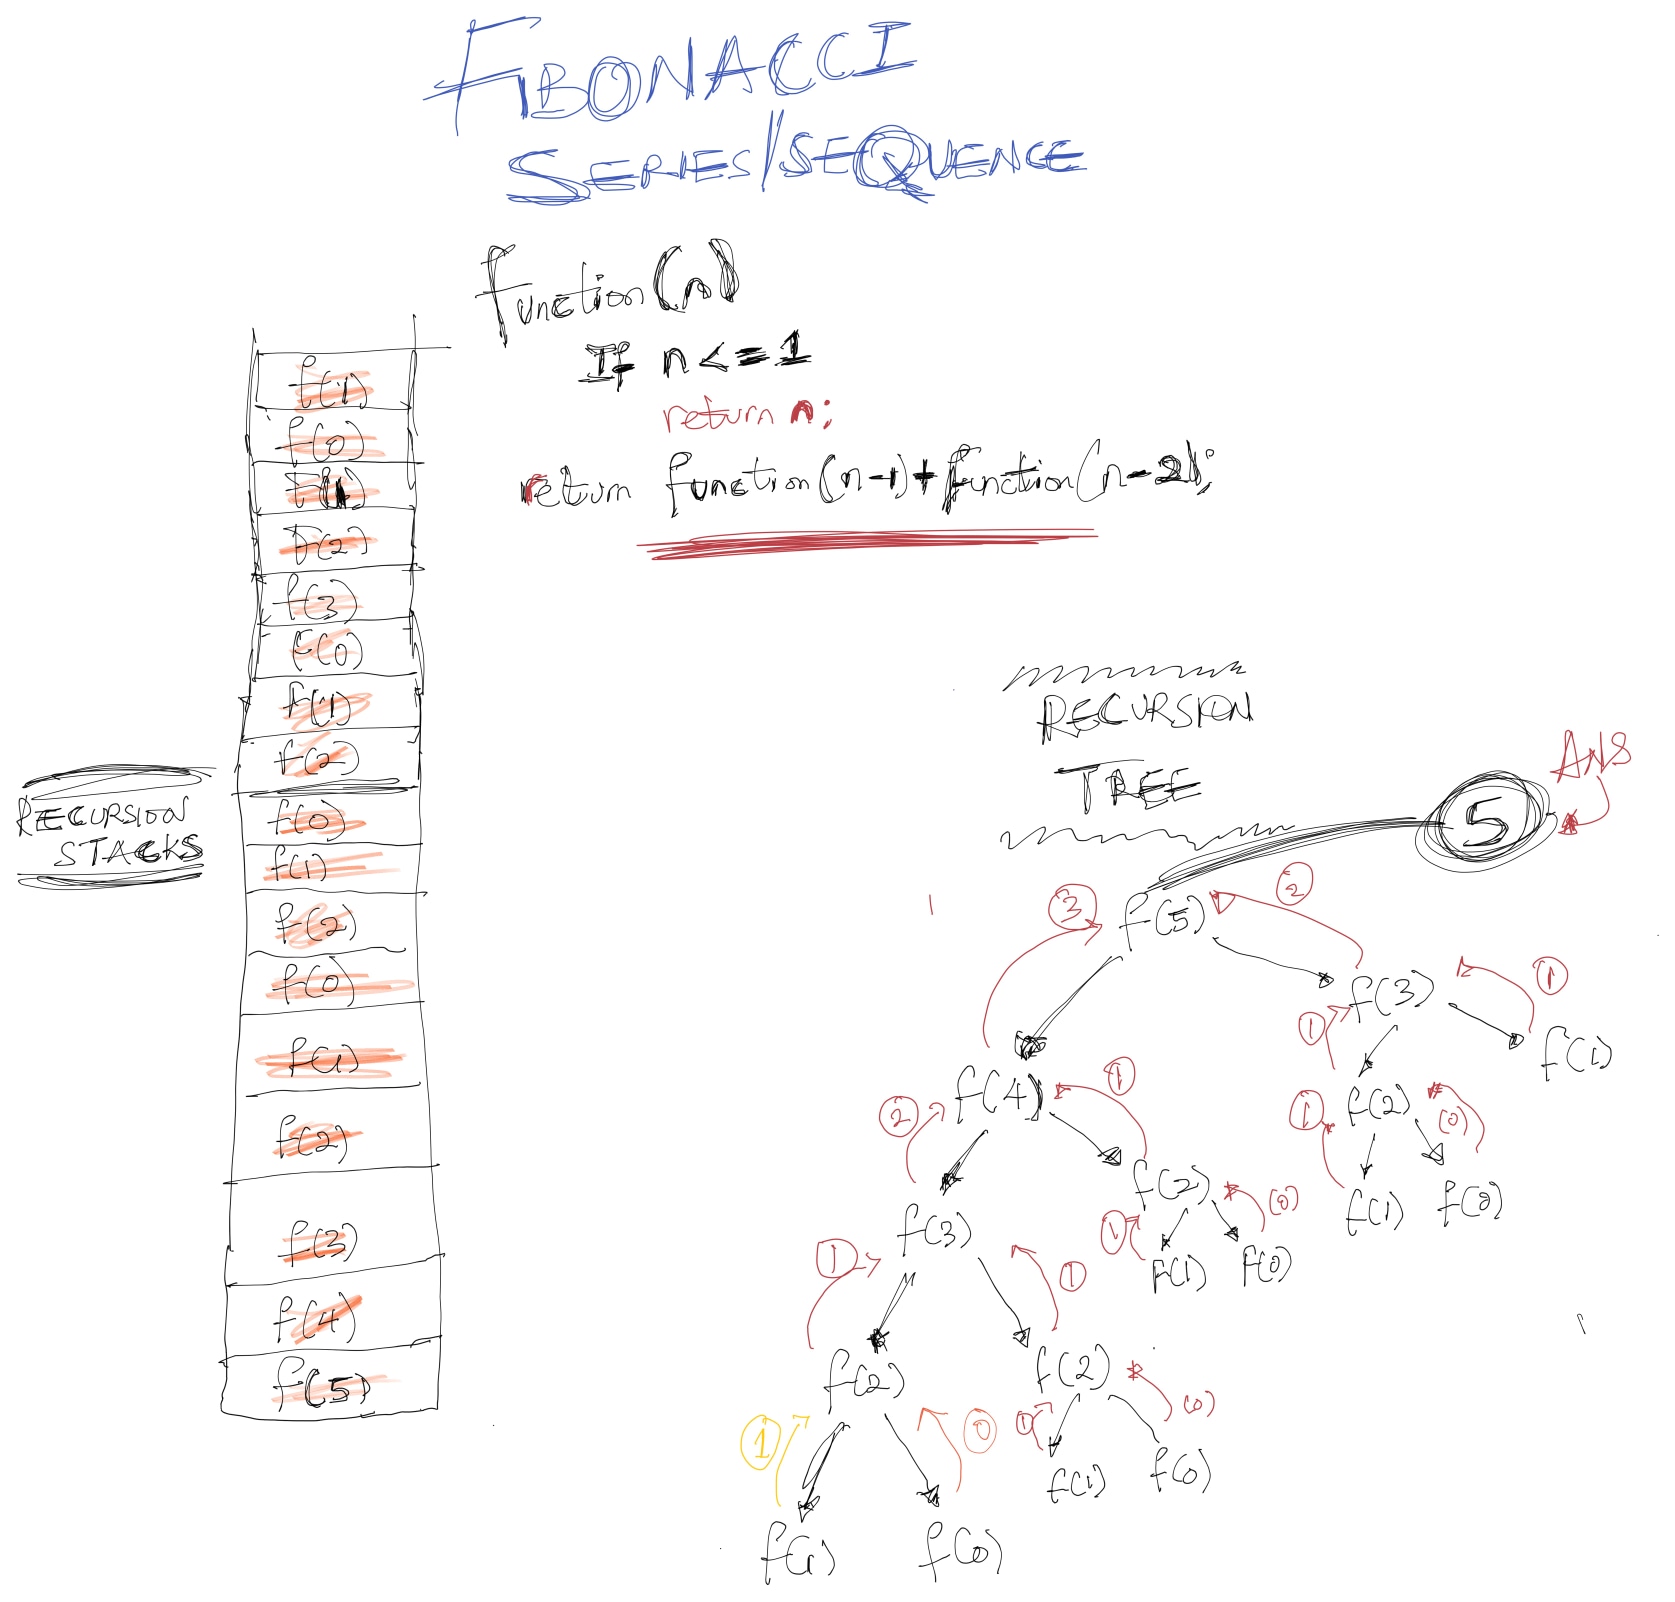 FIBONACCI
SERIES/SEQUENCE
function(n)
If n <= 1
return n;
return function(n-1)+function(n-2);
RECURSION
STACKS
f(1)
f(0)
f(1)
f(2)
f(3)
f(0)
f(1)
f(2)
f(0)
f(1)
f(2)
f(0)
f(1)
f(2)
f(3)
f(4)
f(5)
RECURSION
TREE
ANS
5
3 f(5) 2
f(3) 1
1 f(1)
2 f(4) 1
1 f(2) (0)
f(2) (0) f(1) f(0)
f(3) 1 f(1) f(0)
1 1
f(2) f(2) (0)
1 0 1
f(1) f(0)
f(1) f(0)